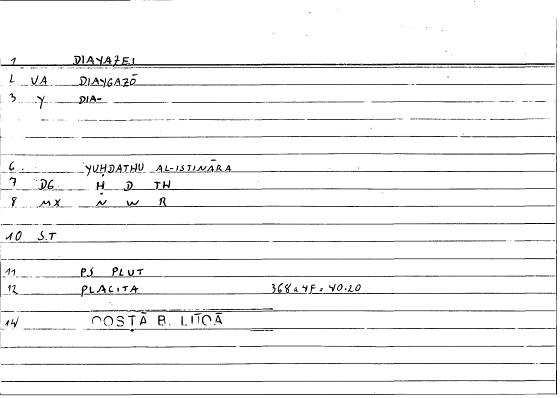 1 DIAYAZEI
2 VA DIAYGAZŌ
3 Y DIA-
6 YUḤDATHU AL-ISTINĀRA
7 DG Ḥ D TH
8 MX N W R
10 S.T
11 PS PLUT
12 PLACITA 368a 4F = 40.20
14 QOSṬĀ B. LŪQĀ